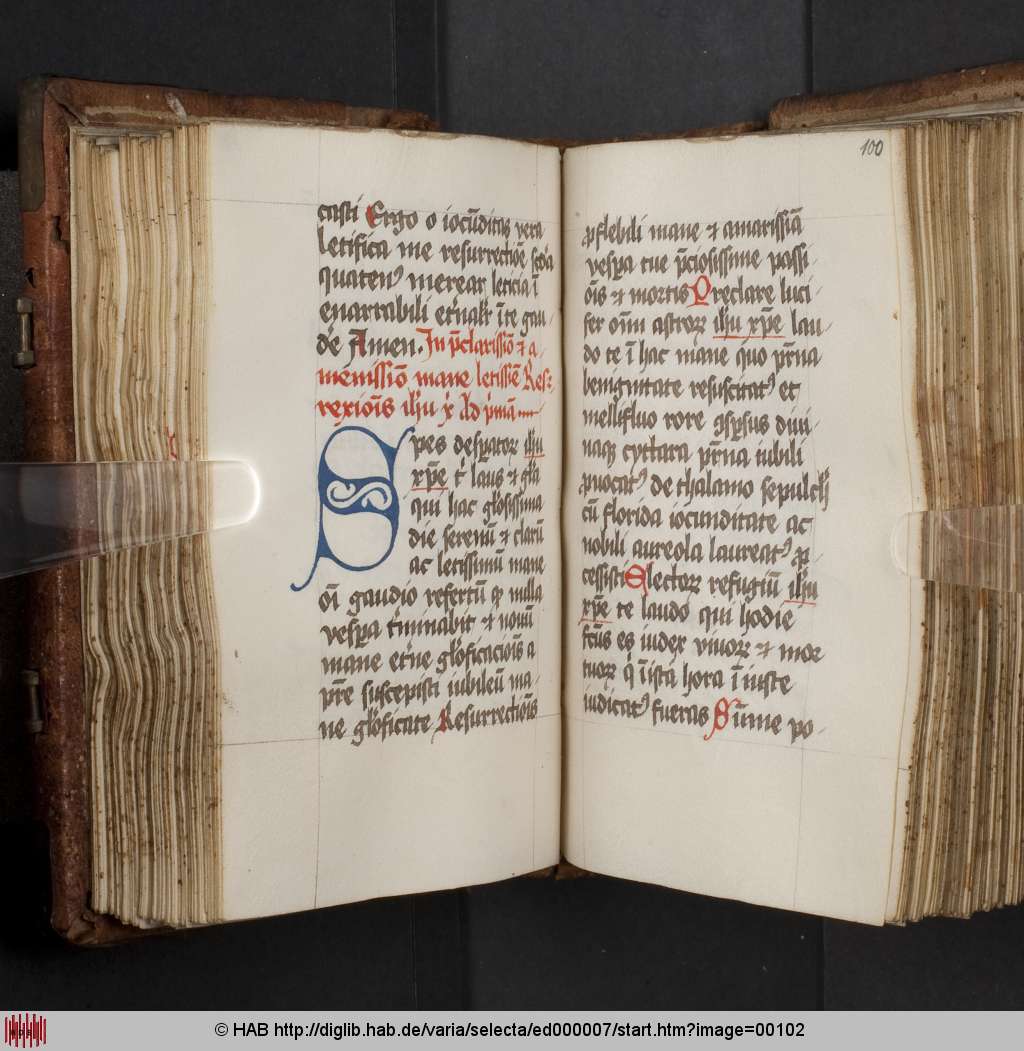 casti Ergo o iocūditas vera
letifica me resurrectiōe scd̄a
quaten⁹ merear leticia ī
enarrabili et'nalr̄ ī te gau-
dē Amen. In p̄clarissīo ⁊ a-
menissīo mane letissīe Resr-
rexiōis ihū x̄ Ad p'mā
Spes despatoꝝ ihū
xp̄e t' laus ⁊ glīa
qui hac glōsissima
die serenū ⁊ clarū
ac letissimū mane
oī gaudio refertū qͥ nulla
vespa t'minabit ⁊ nouū
mane et'ne glōficaciōis a
pr̄e suscepisti iubileū ma-
ne glōficate Resurrectiōis
100
ꝓ flebili mane ⁊ amarissīa
vespa tue p̄ciosissime passi-
ōis ⁊ mortis Preclare luci-
fer oīm astroꝝ ihū xp̄e lau-
do te ī hac mane quo pr̄na
benignitate resuscitat⁹ et
mellifluo rore ꝯspsus diui-
naqꝫ cythara pr̄na iubili
ꝓuocat⁹ de thalamo sepulchͥ
cū florida iocunditate ac
nobili aureola laureat⁹ ꝓ-
cessisti Electoꝝ refugiū ihū
xp̄e te laudo qui hodie
fc̄us es iudex viuoꝝ ⁊ mor
tuoꝝ qͥ ī ista hora ī iuste
iudicat⁹ fueras Sūme po-
© HAB http://diglib.hab.de/varia/selecta/ed000007/start.htm?image=00102